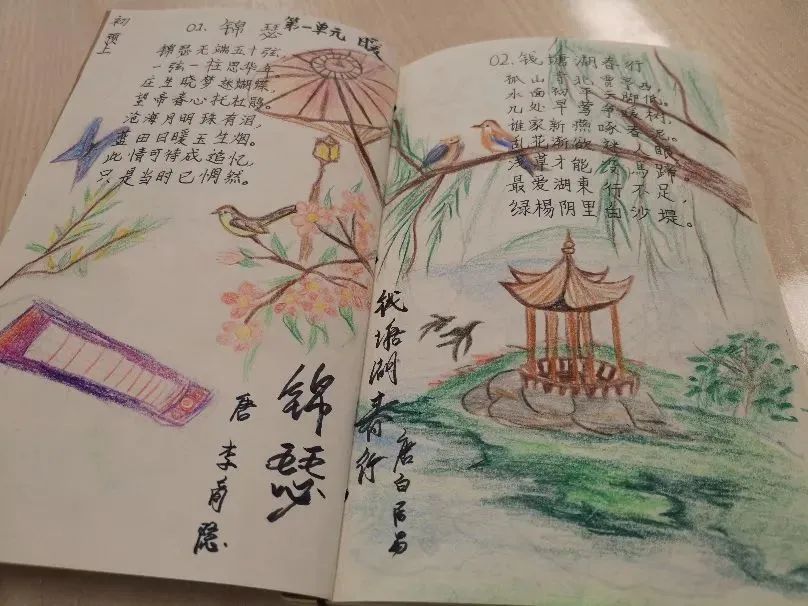 初
01. 锦瑟
第一单元 暖
锦瑟无端五十弦,
一弦一柱思华年。
庄生晓梦迷蝴蝶,
望帝春心托杜鹃。
沧海月明珠有泪,
蓝田日暖玉生烟。
此情可待成追忆,
只是当时已惘然。
锦瑟
唐 李商隐
02.钱塘湖春行
孤山寺北贾亭西,
水面初平云脚低。
几处早莺争暖树,
谁家新燕啄春泥。
乱花渐欲迷人眼,
浅草才能没馬蹄。
最爱湖東行不足,
绿楊阴里白沙堤。
钱塘湖春行
唐白居易